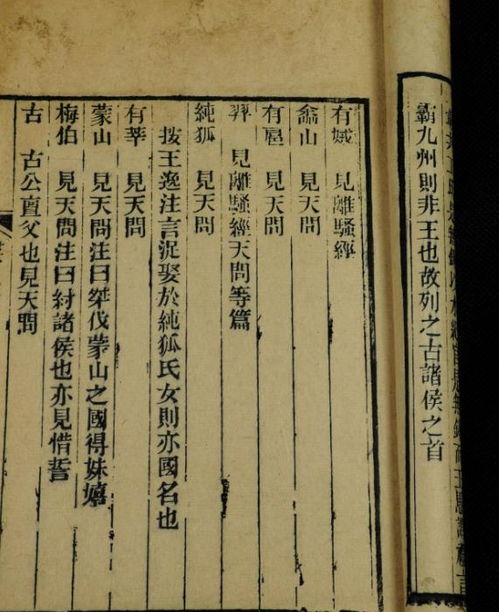 霸九州則非王也故列之古諸侯之首
有娀 見離騷經
嵞山 見天問
有扈 見天問
羿 見離騷經天問等篇
純狐 見天問
按王逸注言浞娶於純狐氏女則亦國名也
有莘 見天問
蒙山 見天問注曰桀伐蒙山之國得妺嬉
梅伯 見天問注曰紂諸侯也亦見惜誓
古 古公亶父也見天問